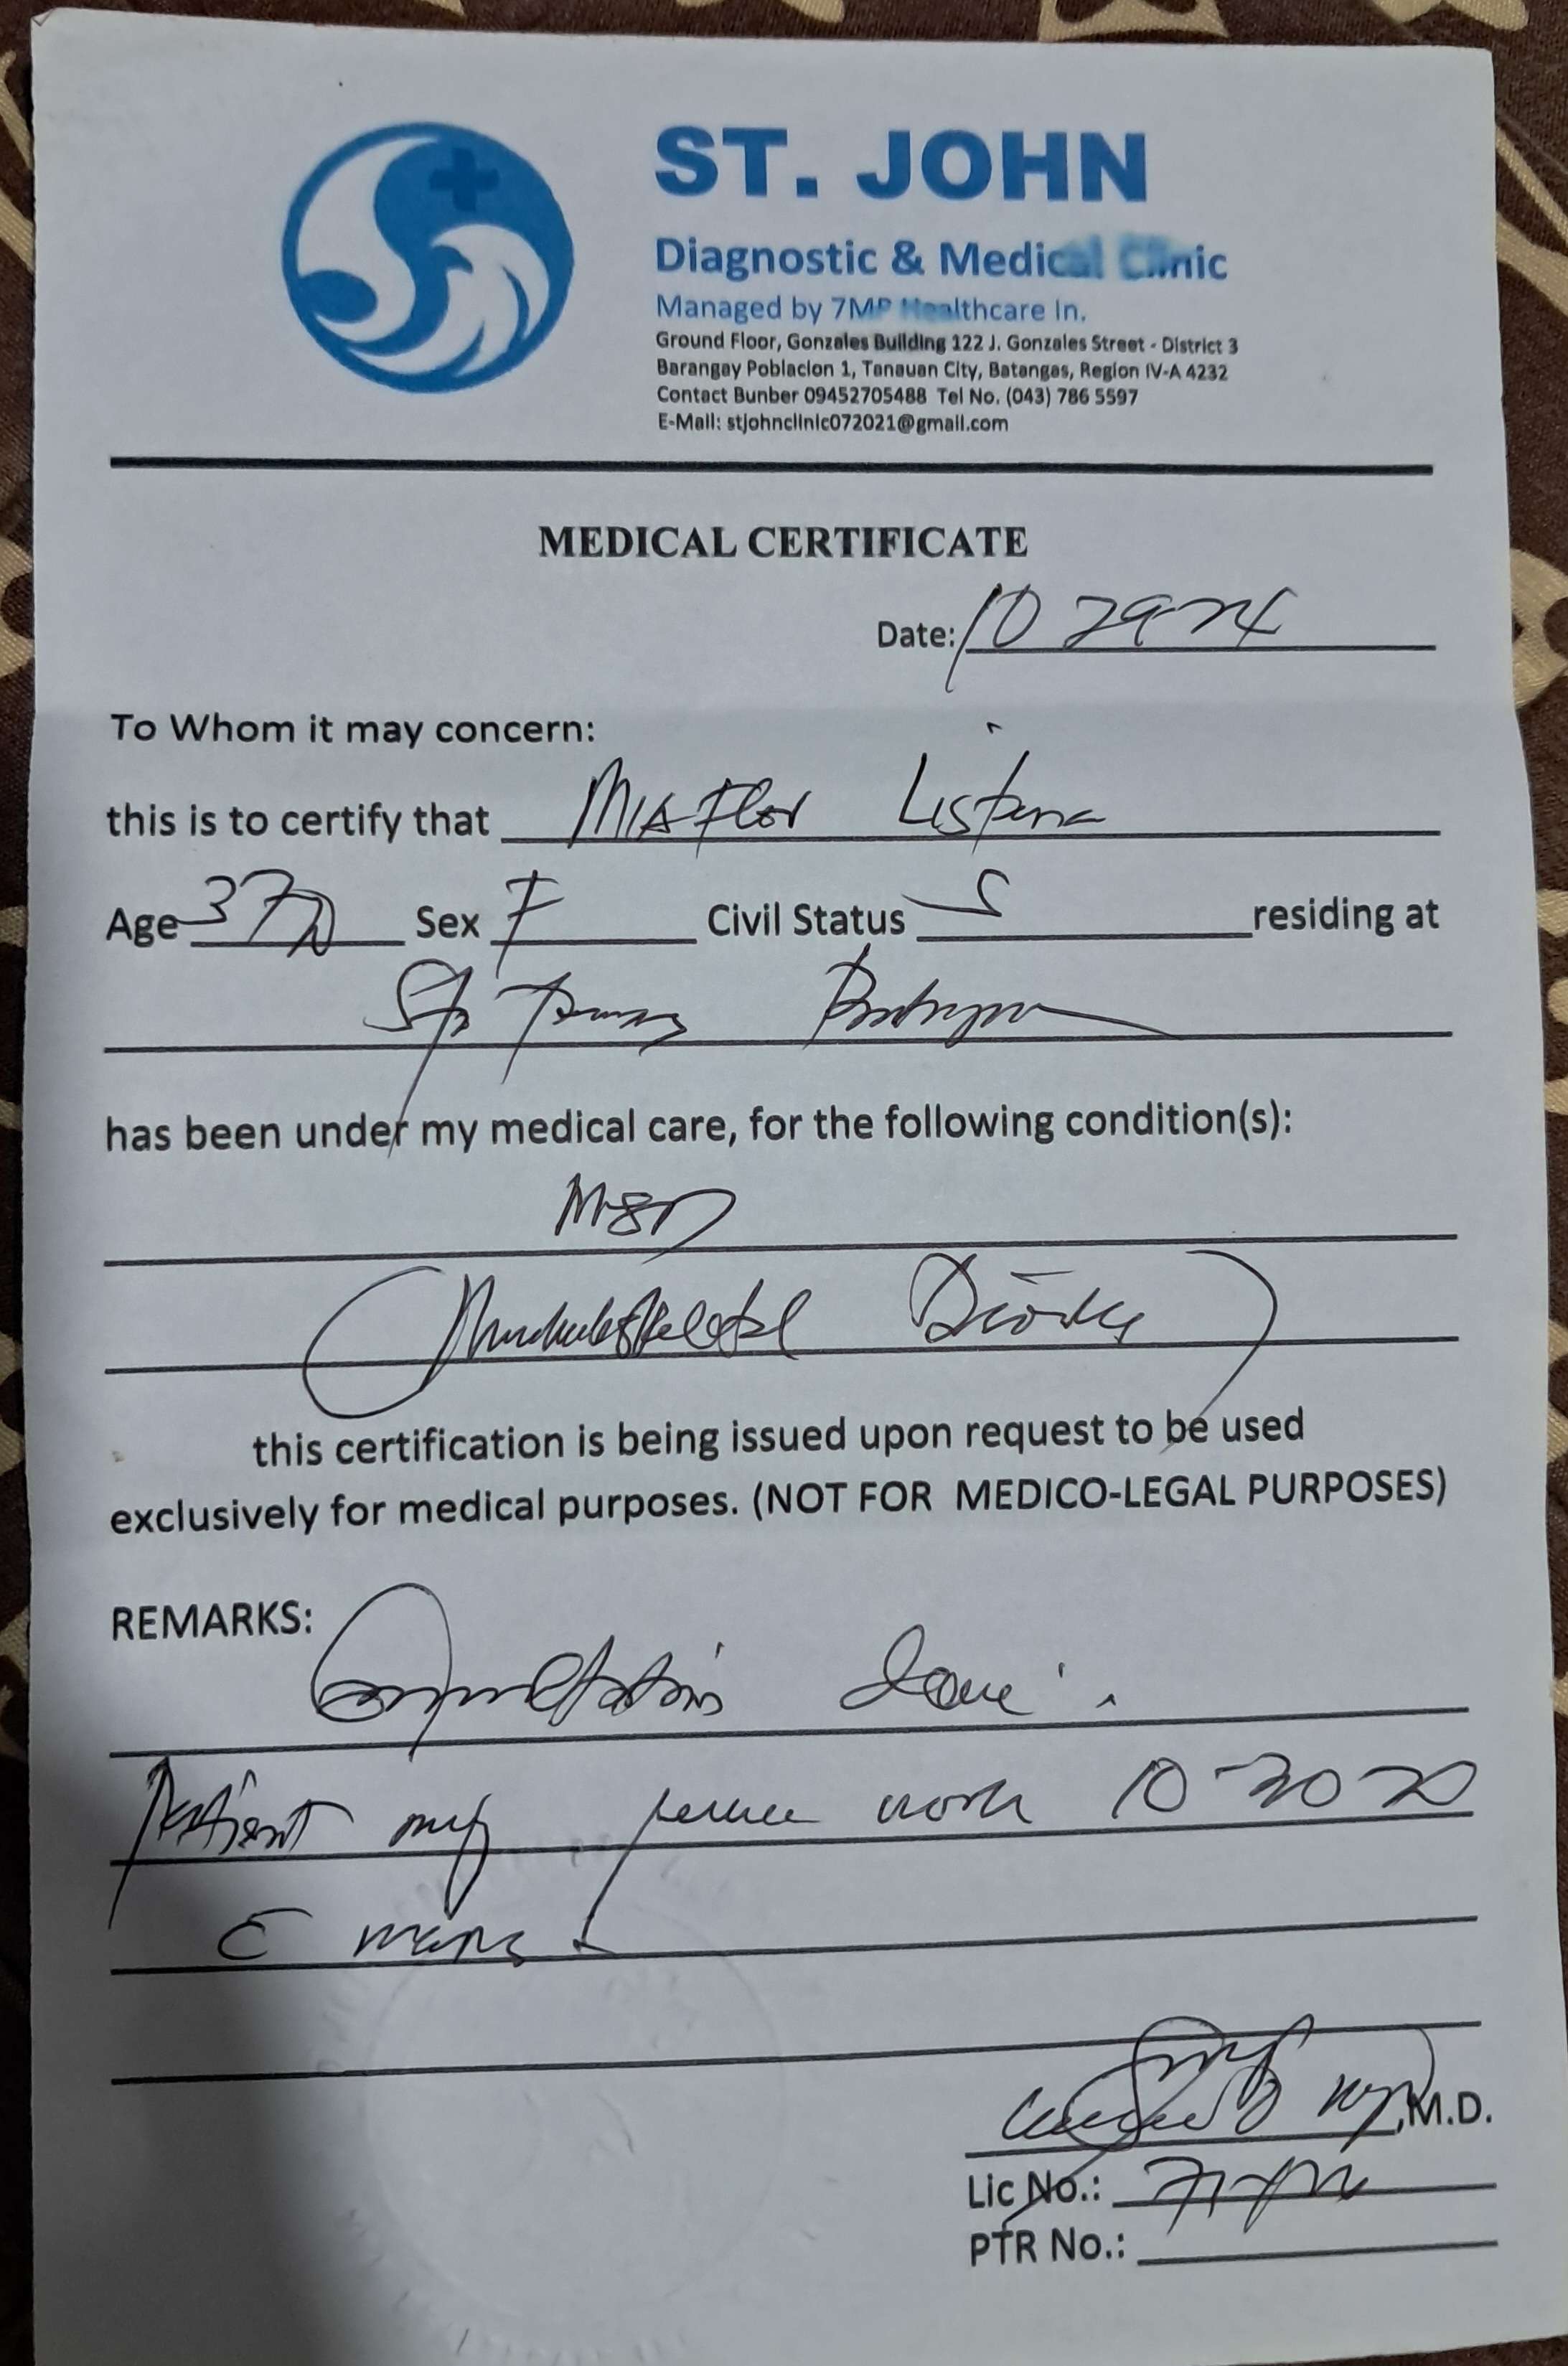 ST. JOHN
Diagnostic & Medical Clinic
Managed by 7MP Healthcare In.
Ground Floor, Gonzales Building 122 J. Gonzales Street - District 3
Barangay Poblacion 1, Tanauan City, Batangas, Region IV-A 4232
Contact Bunber 09452705488 Tel No. (043) 786 5597
E-Mail: stjohnclinic072021@gmail.com
MEDICAL CERTIFICATE
Date: 10 29-24
To Whom it may concern:
this is to certify that MIA Flor
Age 37 Sex F Civil Status S residing at
Sto Tomas Batangas
has been under my medical care, for the following condition(s):
MSD
(Musculoskeletal Disorder)
this certification is being issued upon request to be used
exclusively for medical purposes. (NOT FOR MEDICO-LEGAL PURPOSES)
REMARKS:
Consultation done.
Patient may resume work 10-30
c meds
,M.D.
Lic No.:
PTR No.: